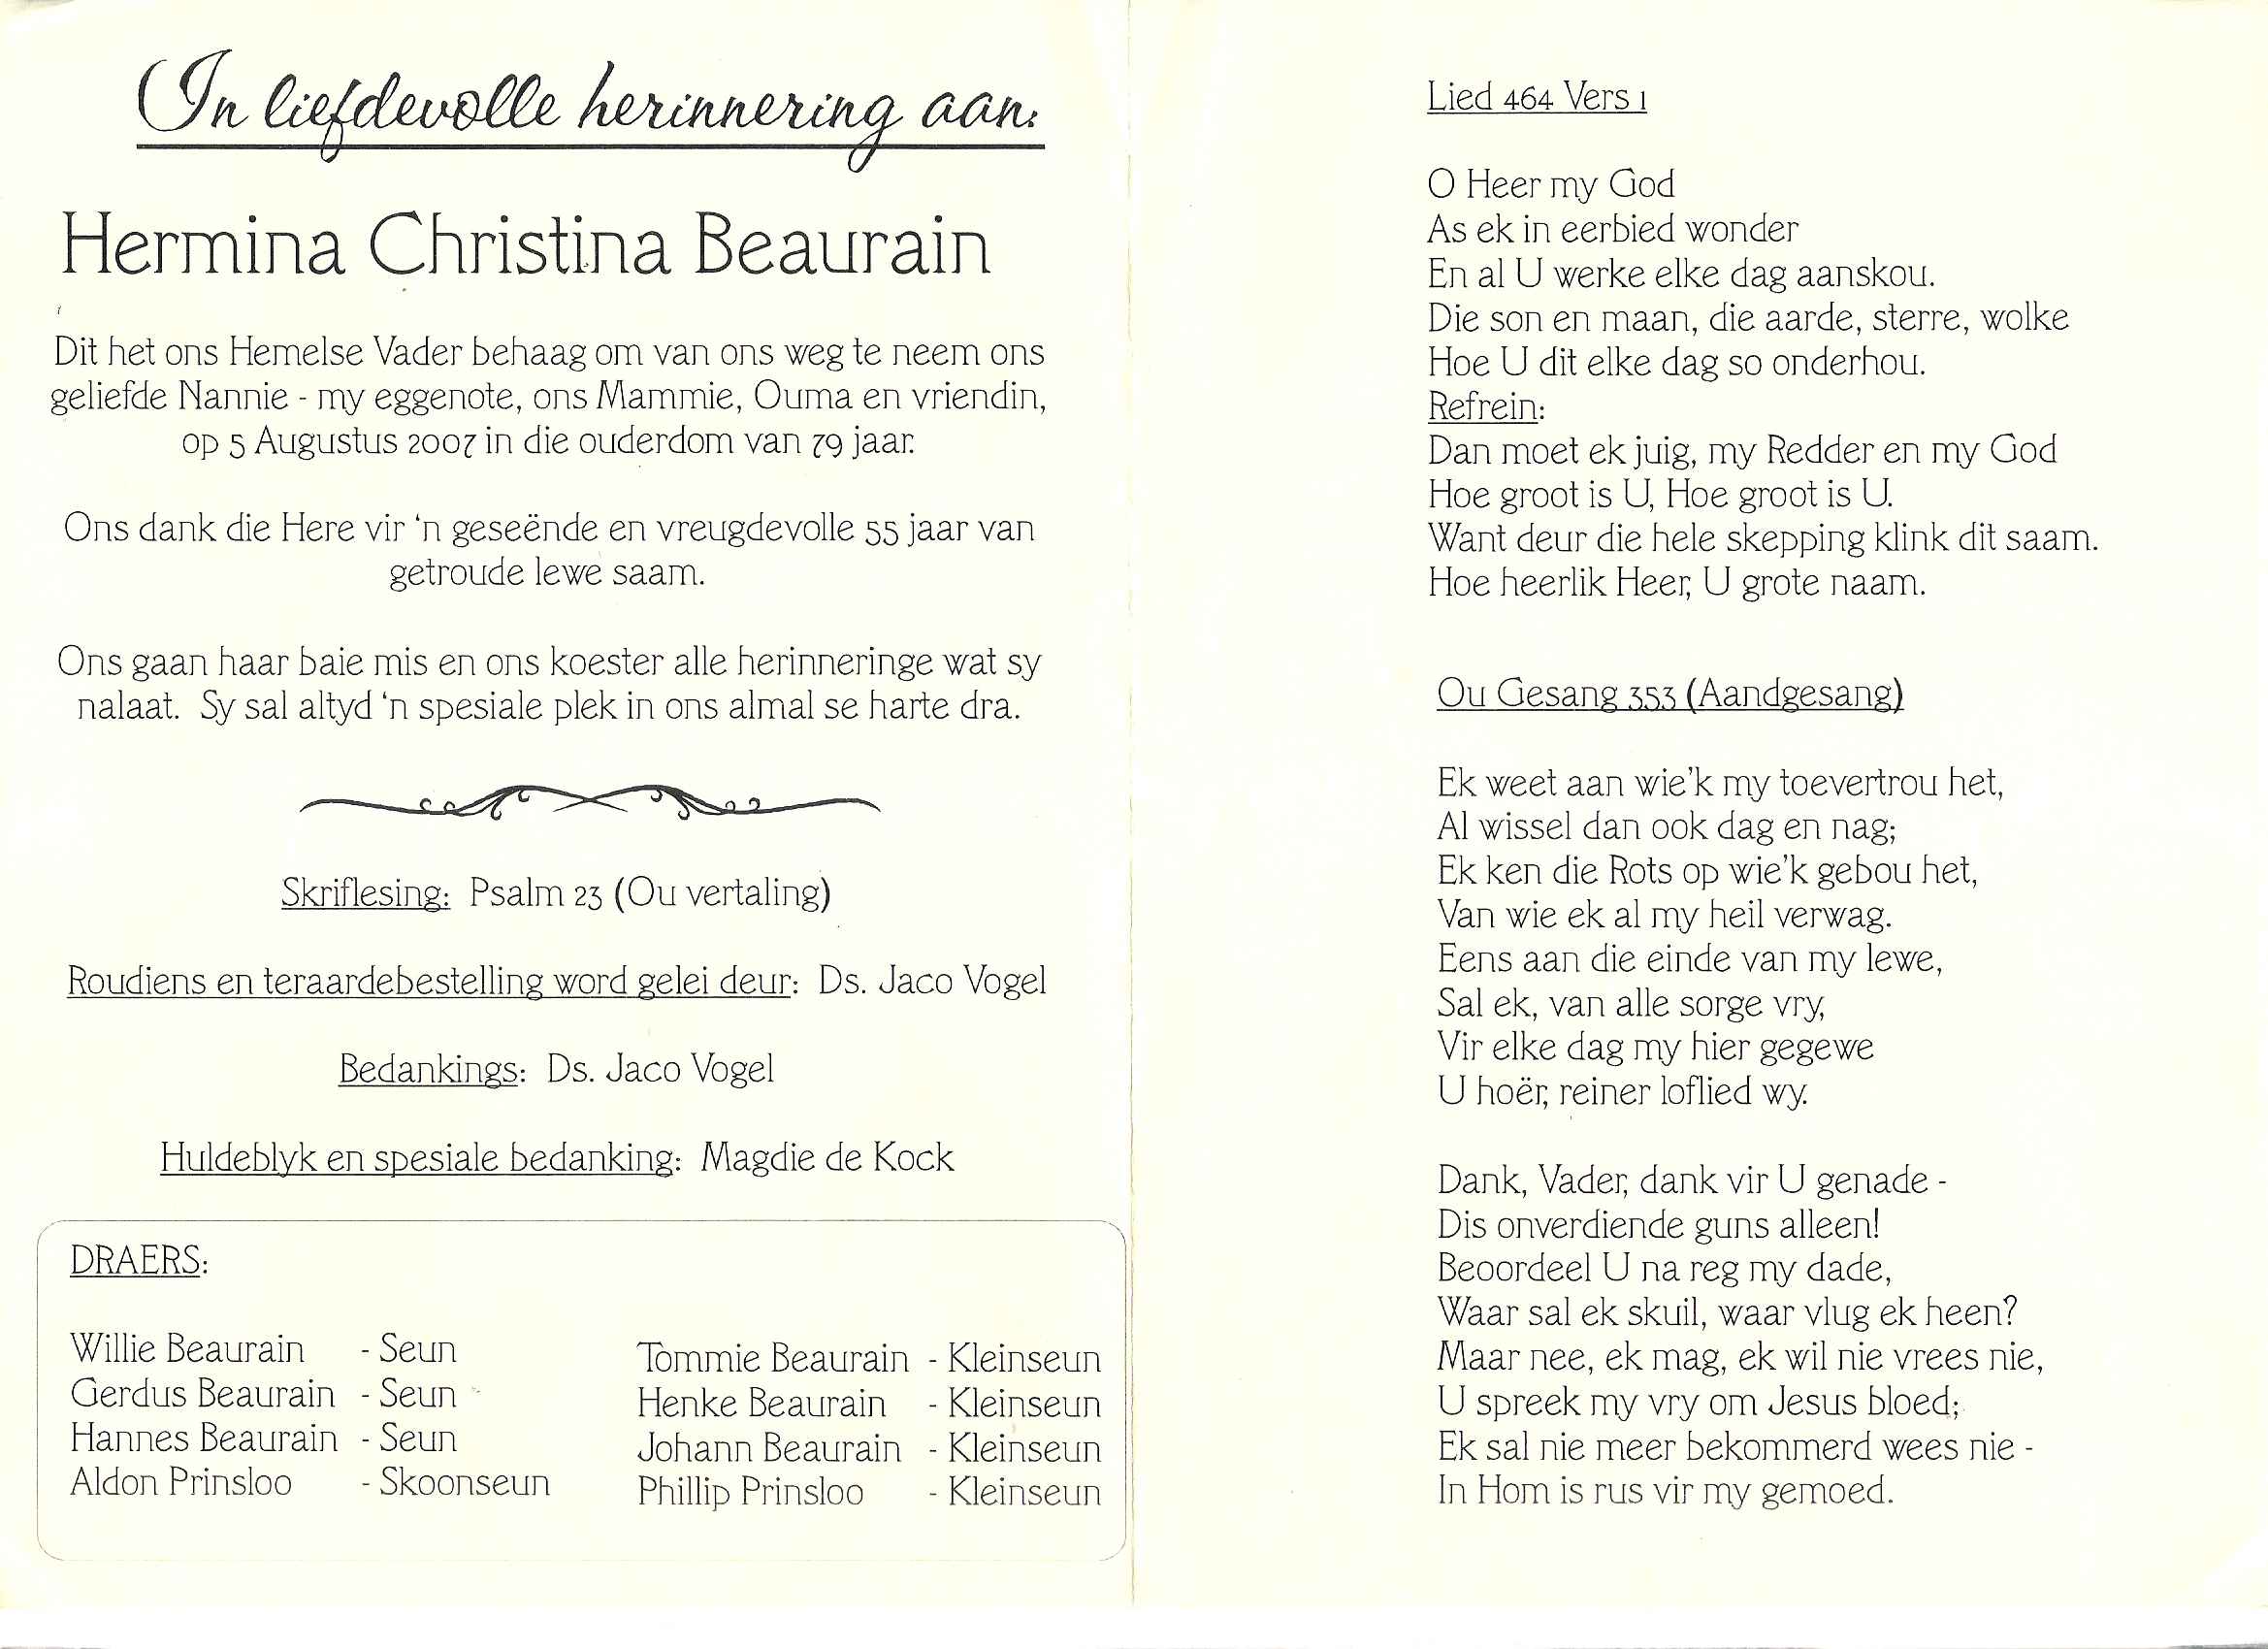 In liefdevolle herinnering aan:
Hermina Christina Beaurain
Dit het ons Hemelse Vader behaag om van ons weg te neem ons
geliefde Nannie - my eggenote, ons Mammie, Ouma en vriendin,
op 5 Augustus 2007 in die ouderdom van 79 jaar.
Ons dank die Here vir 'n geseënde en vreugdevolle 55 jaar van
getroude lewe saam.
Ons gaan haar baie mis en ons koester alle herinneringe wat sy
nalaat. Sy sal altyd 'n spesiale plek in ons almal se harte dra.
Skriflesing: Psalm 23 (Ou vertaling)
Roudiens en teraardebestelling word gelei deur: Ds. Jaco Vogel
Bedankings: Ds. Jaco Vogel
Huldeblyk en spesiale bedanking: Magdie de Kock
DRAERS:
Willie Beaurain - Seun
Gerdus Beaurain - Seun
Hannes Beaurain - Seun
Aldon Prinsloo - Skoonseun
Tommie Beaurain - Kleinseun
Henke Beaurain - Kleinseun
Johann Beaurain - Kleinseun
Phillip Prinsloo - Kleinseun
Lied 464 Vers 1
O Heer my God
As ek in eerbied wonder
En al U werke elke dag aanskou.
Die son en maan, die aarde, sterre, wolke
Hoe U dit elke dag so onderhou.
Refrein:
Dan moet ek juig, my Redder en my God
Hoe groot is U, Hoe groot is U.
Want deur die hele skepping klink dit saam.
Hoe heerlik Heer, U grote naam.
Ou Gesang 353 (Aandgesang)
Ek weet aan wie'k my toevertrou het,
Al wissel dan ook dag en nag;
Ek ken die Rots op wie'k gebou het,
Van wie ek al my heil verwag.
Eens aan die einde van my lewe,
Sal ek, van alle sorge vry,
Vir elke dag my hier gegewe
U hoër, reiner loflied wy.
Dank, Vader, dank vir U genade -
Dis onverdiende guns alleen!
Beoordeel U na reg my dade,
Waar sal ek skuil, waar vlug ek heen?
Maar nee, ek mag, ek wil nie vrees nie,
U spreek my vry om Jesus bloed;
Ek sal nie meer bekommerd wees nie -
In Hom is rus vir my gemoed.